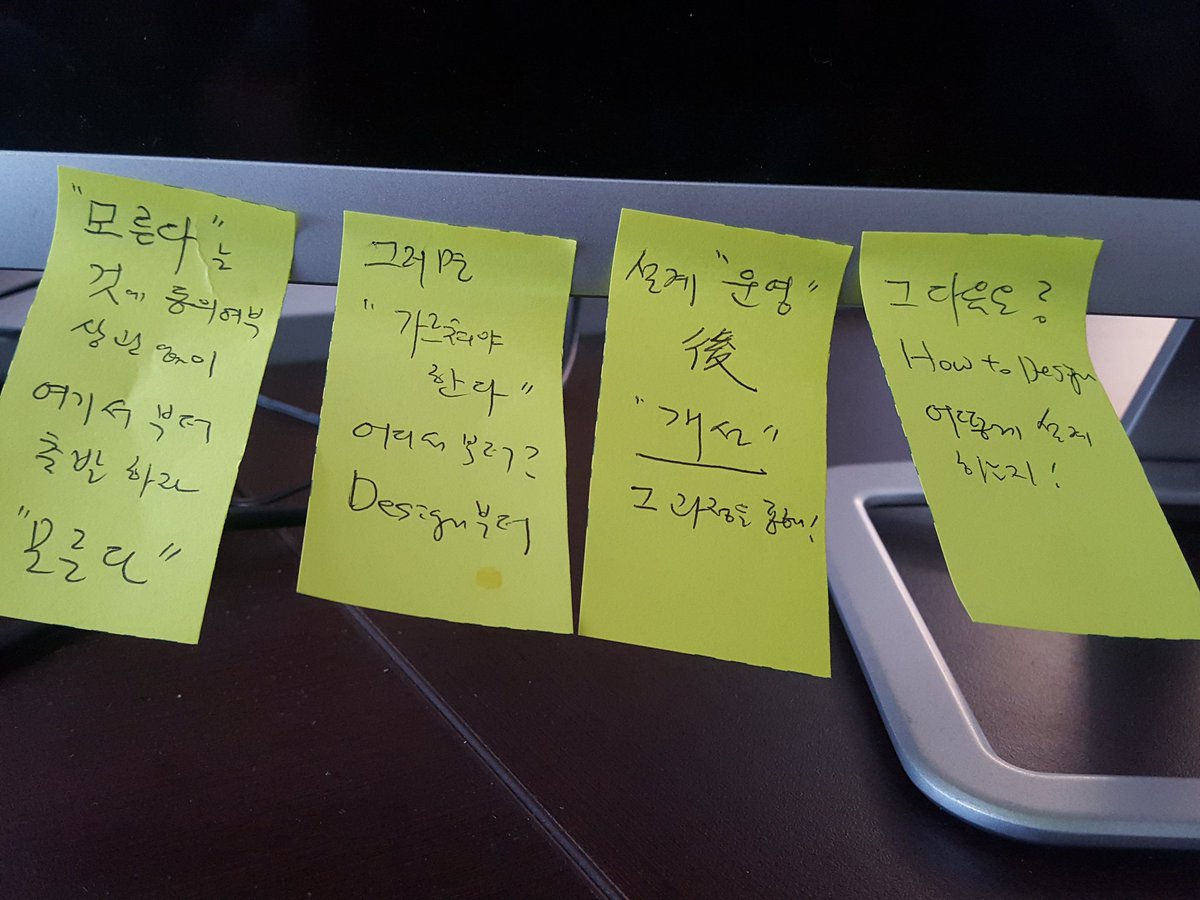 "모른다"는
것에 동의여부
상관 없이
여기서 부터
출발 하라
"모른다"
그러면
"가르쳐야
한다"
어디서 부터?
Design부터
설계 "운영"
後
"개선"
그 과정을 통해!
그 다음은?
How to Design
어떻게 설계
하는지!